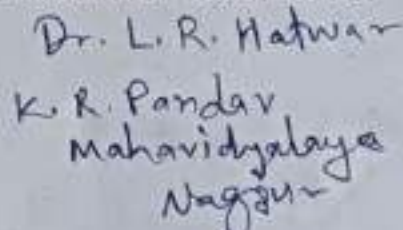 Dr. L. R. Hatwar
K. R. Pandav
Mahavidyalaya
Nagpur